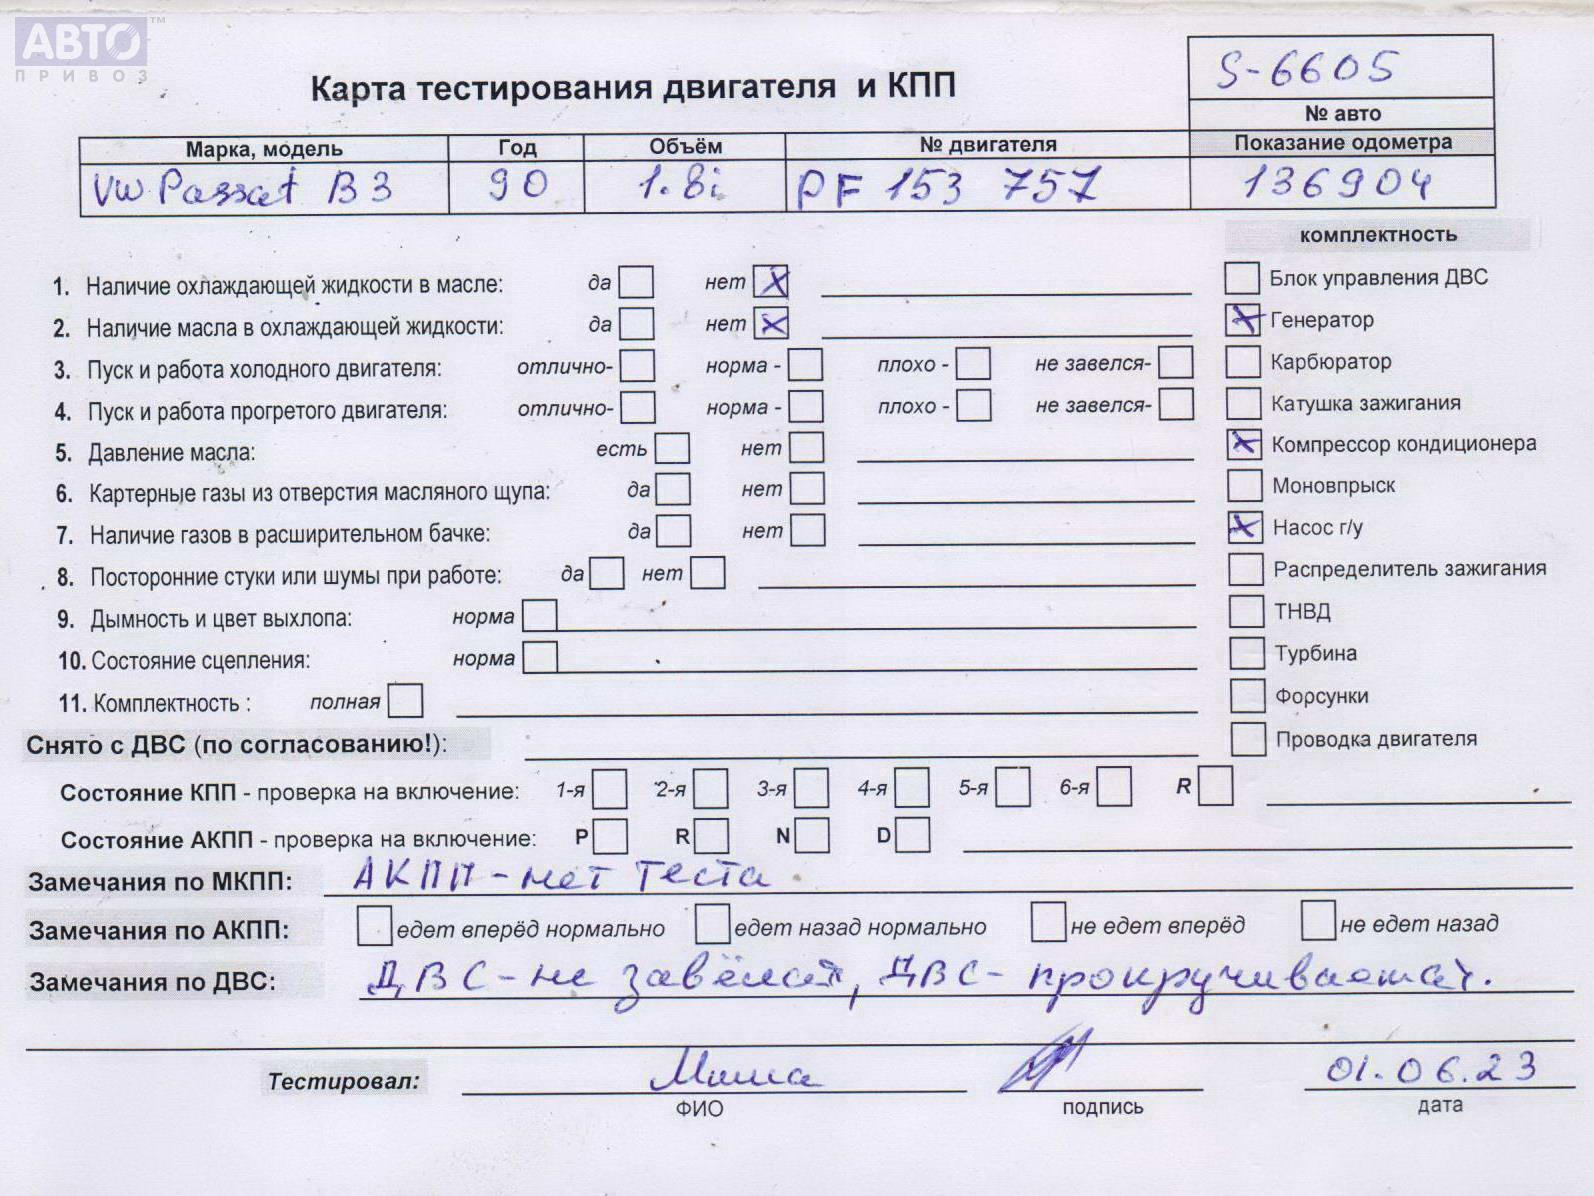 АВТО™
ПРИВОЗ
Карта тестирования двигателя и КПП
S-6605
№ авто
Марка, модель Год Объём № двигателя Показание одометра
VW Passat B3 90 1.8i PF 153 757 136904
комплектность
1. Наличие охлаждающей жидкости в масле: да нет X Блок управления ДВС
2. Наличие масла в охлаждающей жидкости: да нет X X Генератор
3. Пуск и работа холодного двигателя: отлично- норма - плохо - не завелся- Карбюратор
4. Пуск и работа прогретого двигателя: отлично- норма - плохо - не завелся- Катушка зажигания
5. Давление масла: есть нет X Компрессор кондиционера
6. Картерные газы из отверстия масляного щупа: да нет Моновпрыск
7. Наличие газов в расширительном бачке: да нет X Насос г/у
8. Посторонние стуки или шумы при работе: да нет Распределитель зажигания
9. Дымность и цвет выхлопа: норма ТНВД
10. Состояние сцепления: норма Турбина
11. Комплектность : полная Форсунки
Снято с ДВС (по согласованию!): Проводка двигателя
Состояние КПП - проверка на включение: 1-я 2-я 3-я 4-я 5-я 6-я R
Состояние АКПП - проверка на включение: P R N D
Замечания по МКПП: АКПП - нет теста
Замечания по АКПП: едет вперёд нормально едет назад нормально не едет вперёд не едет назад
Замечания по ДВС: ДВС - не завёлся, ДВС - прокручивается.
Тестировал: Миша 01.06.23
ФИО подпись дата